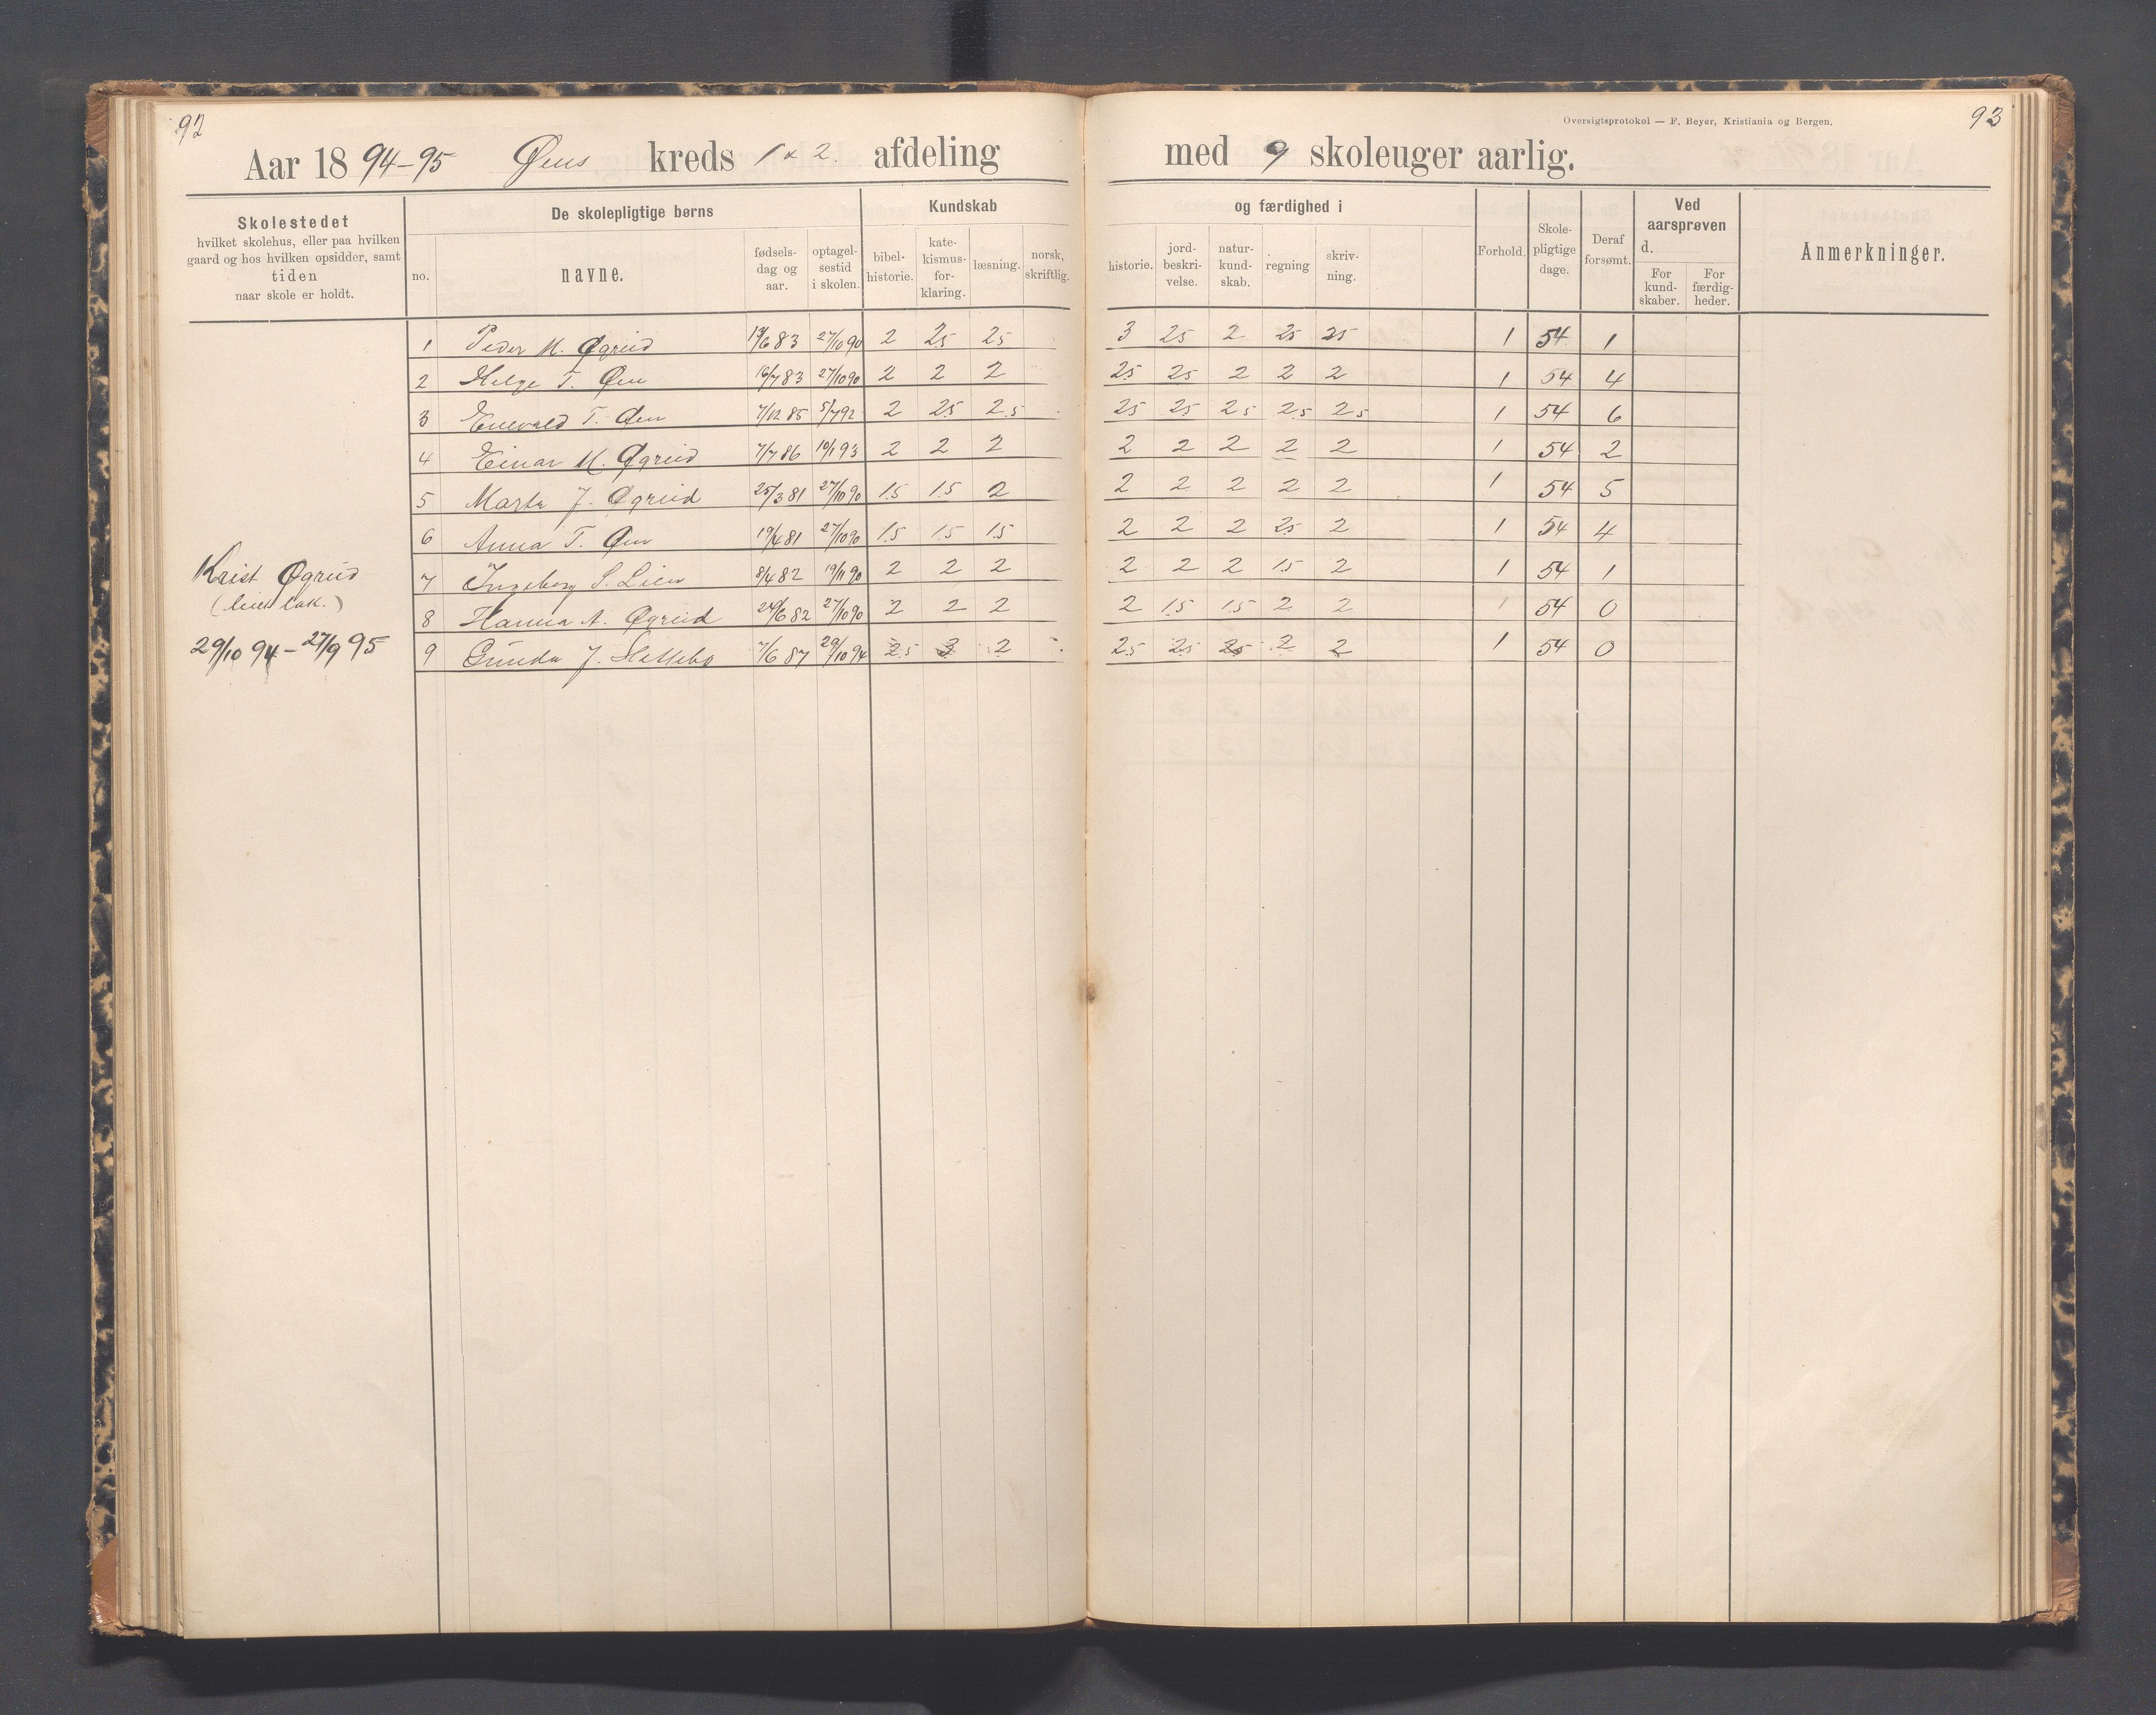 92
Aar 1894-95 Øens kreds 1 & 2. afdeling
Skolestedet
hvilket skolehus, eller paa hvilken
gaard og hos hvilken opsidder, samt
tiden
naar skole er holdt.
De skolepligtige børns
no.
navne.
fødsels-
dag og
aar.
optagel-
sestid
i skolen.
Kundskab
bibel-
historie.
kate-
kismus-
for-
klaring.
læsning.
norsk,
skriftlig.
Oversigtsprotokol — F. Beyer, Kristiania og Bergen.
93
med 9 skoleuger aarlig.
og færdighed i
historie.
jord-
beskri-
velse.
natur-
kund-
skab.
regning
skriv-
ning.
Forhold.
Skole-
pligtige
dage.
Deraf
forsømt.
Ved
aarsprøven
d.
For
kund-
skaber.
For
færdig-
heder.
Anmerkninger.
1 Peder M. Øgreid 83 27/10 90 2 25 25 3 25 2 25 25 1 54 1
2 Helge T. Øen 16/7 83 27/10 90 2 2 2 25 25 2 2 2 1 54 4
3 Enevald T. Øen 7/12 85 5/7 92 2 25 2.5 25 25 25 25 25 1 54 6
4 Einar M. Øgreid 7/7 86 19/1 93 2 2 2 2 2 2 2 2 1 54 2
5 Marta J. Øgreid 25/3 81 27/10 90 1.5 1.5 2 2 2 2 2 2 1 54 5
6 Anna T. Øen 19/4 81 27/10 90 1.5 1.5 1.5 2 2 2 25 2 1 54 4
7 Ingeborg S. Lien 8/4 82 19/11 90 2 2 2 2 2 2 1.5 2 1 54 1
8 Hanna A. Øgreid 24/6 82 27/10 90 2 2 2 2 1.5 1.5 2 2 1 54 0
9 Gunda J. 7/6 87 29/10 94 2.5 3 2 2.5 25 25 2 2 1 54 0
Krist Øgreid
29/10 94 - 27/9 95